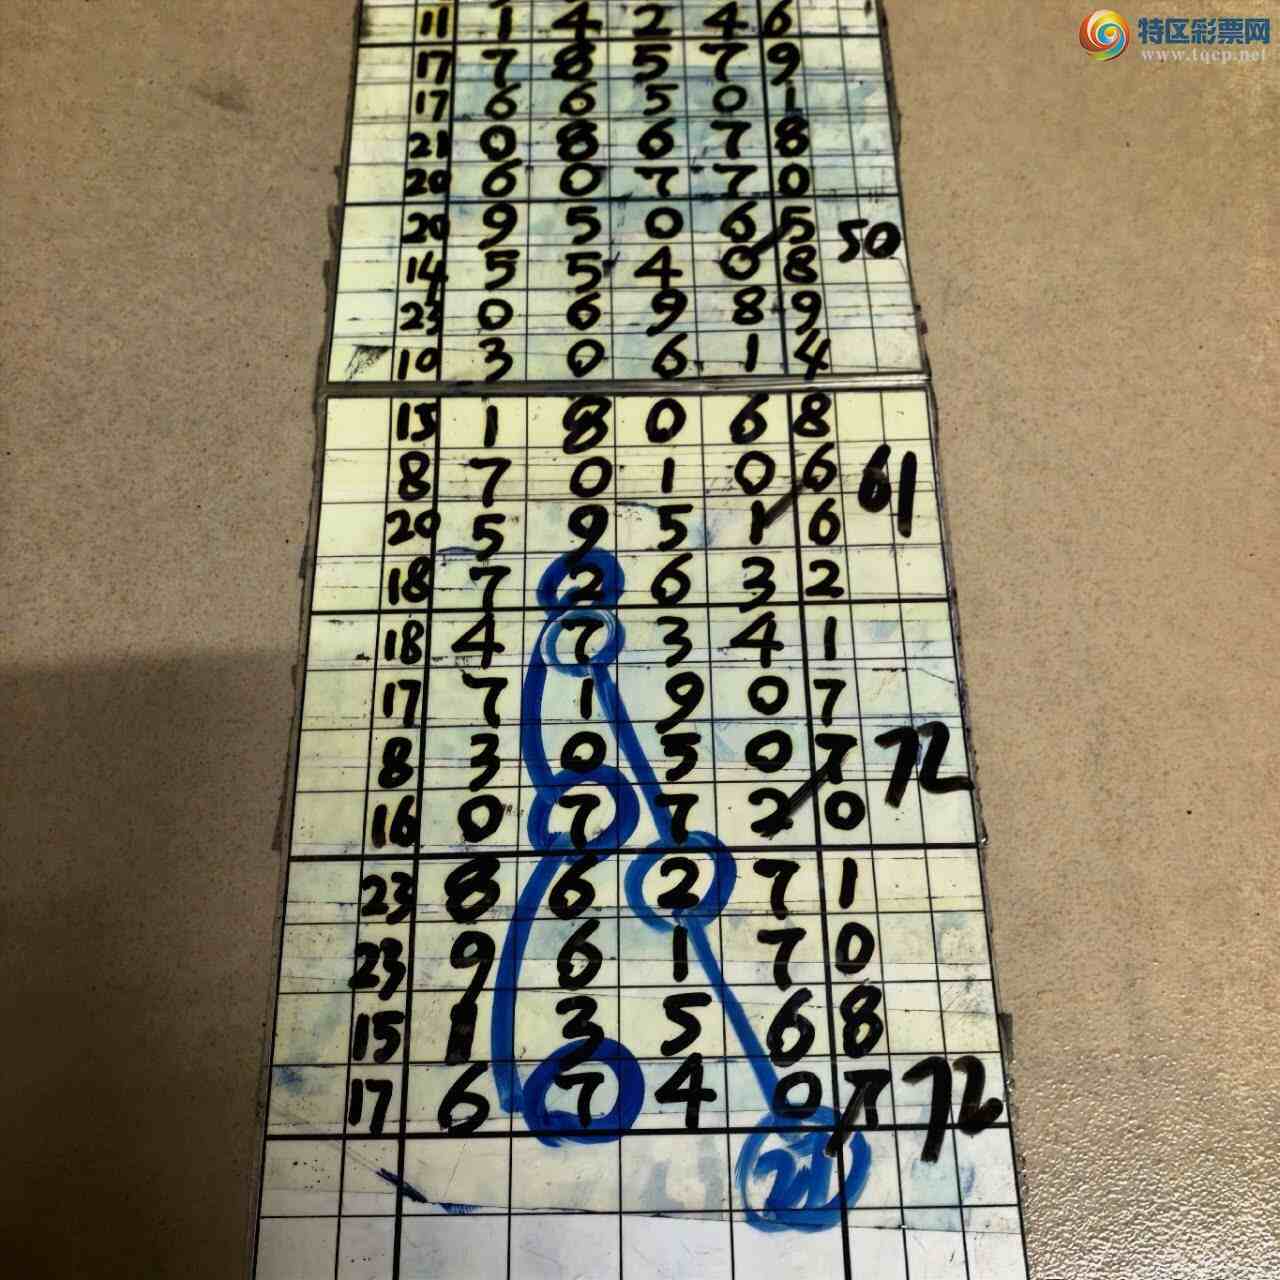 特区彩票网
www.tqcp.net
11 1 4 2 4 6
17 7 8 5 7 9
17 6 6 5 0 1
21 0 8 6 7 8
20 6 0 7 7 0
20 9 5 0 6 5 50
14 5 5 4 0 8
23 0 6 9 8 9
10 3 0 6 1 4
15 1 8 0 6 8
8 7 0 1 0 6 61
20 5 9 5 1 6
18 7 2 6 3 2
18 4 7 3 4 1
17 7 1 9 0 7
8 3 0 5 0 7 72
16 0 7 7 2 0
23 8 6 2 7 1
23 9 6 1 7 0
15 1 3 5 6 8
17 6 7 4 0 7 72
27